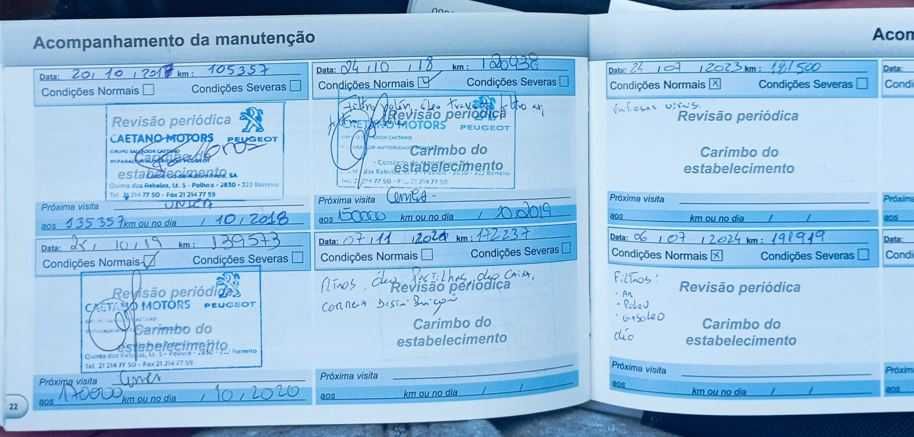 Acompanhamento da manutenção
Data: 20, 10, 2017 km: 105357
Condições Normais Condições Severas
Revisão periódica
CAETANO MOTORS PEUGEOT
Carimbo do
estabelecimento
Quinta dos Rebelos, Lt. 5 - Palhais - 2830 - 222 Barreiro
Tel. 21 214 77 50 - Fax 21 214 77 59
Próxima visita
aos 135357 km ou no dia / 10, 2018
Data: 24, 10, 18 km: 120938
Condições Normais Condições Severas
Revisão periódica
CAETANO MOTORS PEUGEOT
Carimbo do
estabelecimento
Próxima visita
aos 150000 km ou no dia / 10, 2019
Data: 25, 10, 19 km: 139573
Condições Normais Condições Severas
Revisão periódica
CAETANO MOTORS PEUGEOT
Carimbo do
estabelecimento
Tel. 21 214 77 50 - Fax 21 214 77 59
Próxima visita
aos 170000 km ou no dia / 10, 2020
Data: 07, 11, 2021 km: 172237
Condições Normais Condições Severas
Filtros, óleo, Pastilhas, óleo Caixa,
Correia Distribuição
Revisão periódica
Carimbo do
estabelecimento
Próxima visita
aos km ou no dia / /
22
Acom
Data: 07, 2023 km: 191500
Condições Normais Condições Severas
Revisão periódica
Carimbo do
estabelecimento
Próxima visita
aos km ou no dia / /
Data: 06, 07, 2024 km: 198919
Condições Normais Condições Severas
Filtros:
Revisão periódica
· Ar
· Gasóleo
óleo
Carimbo do
estabelecimento
Próxima visita
aos km ou no dia / /
Data:
Condi
Próxim
aos
Data:
Condi
Próxim
aos